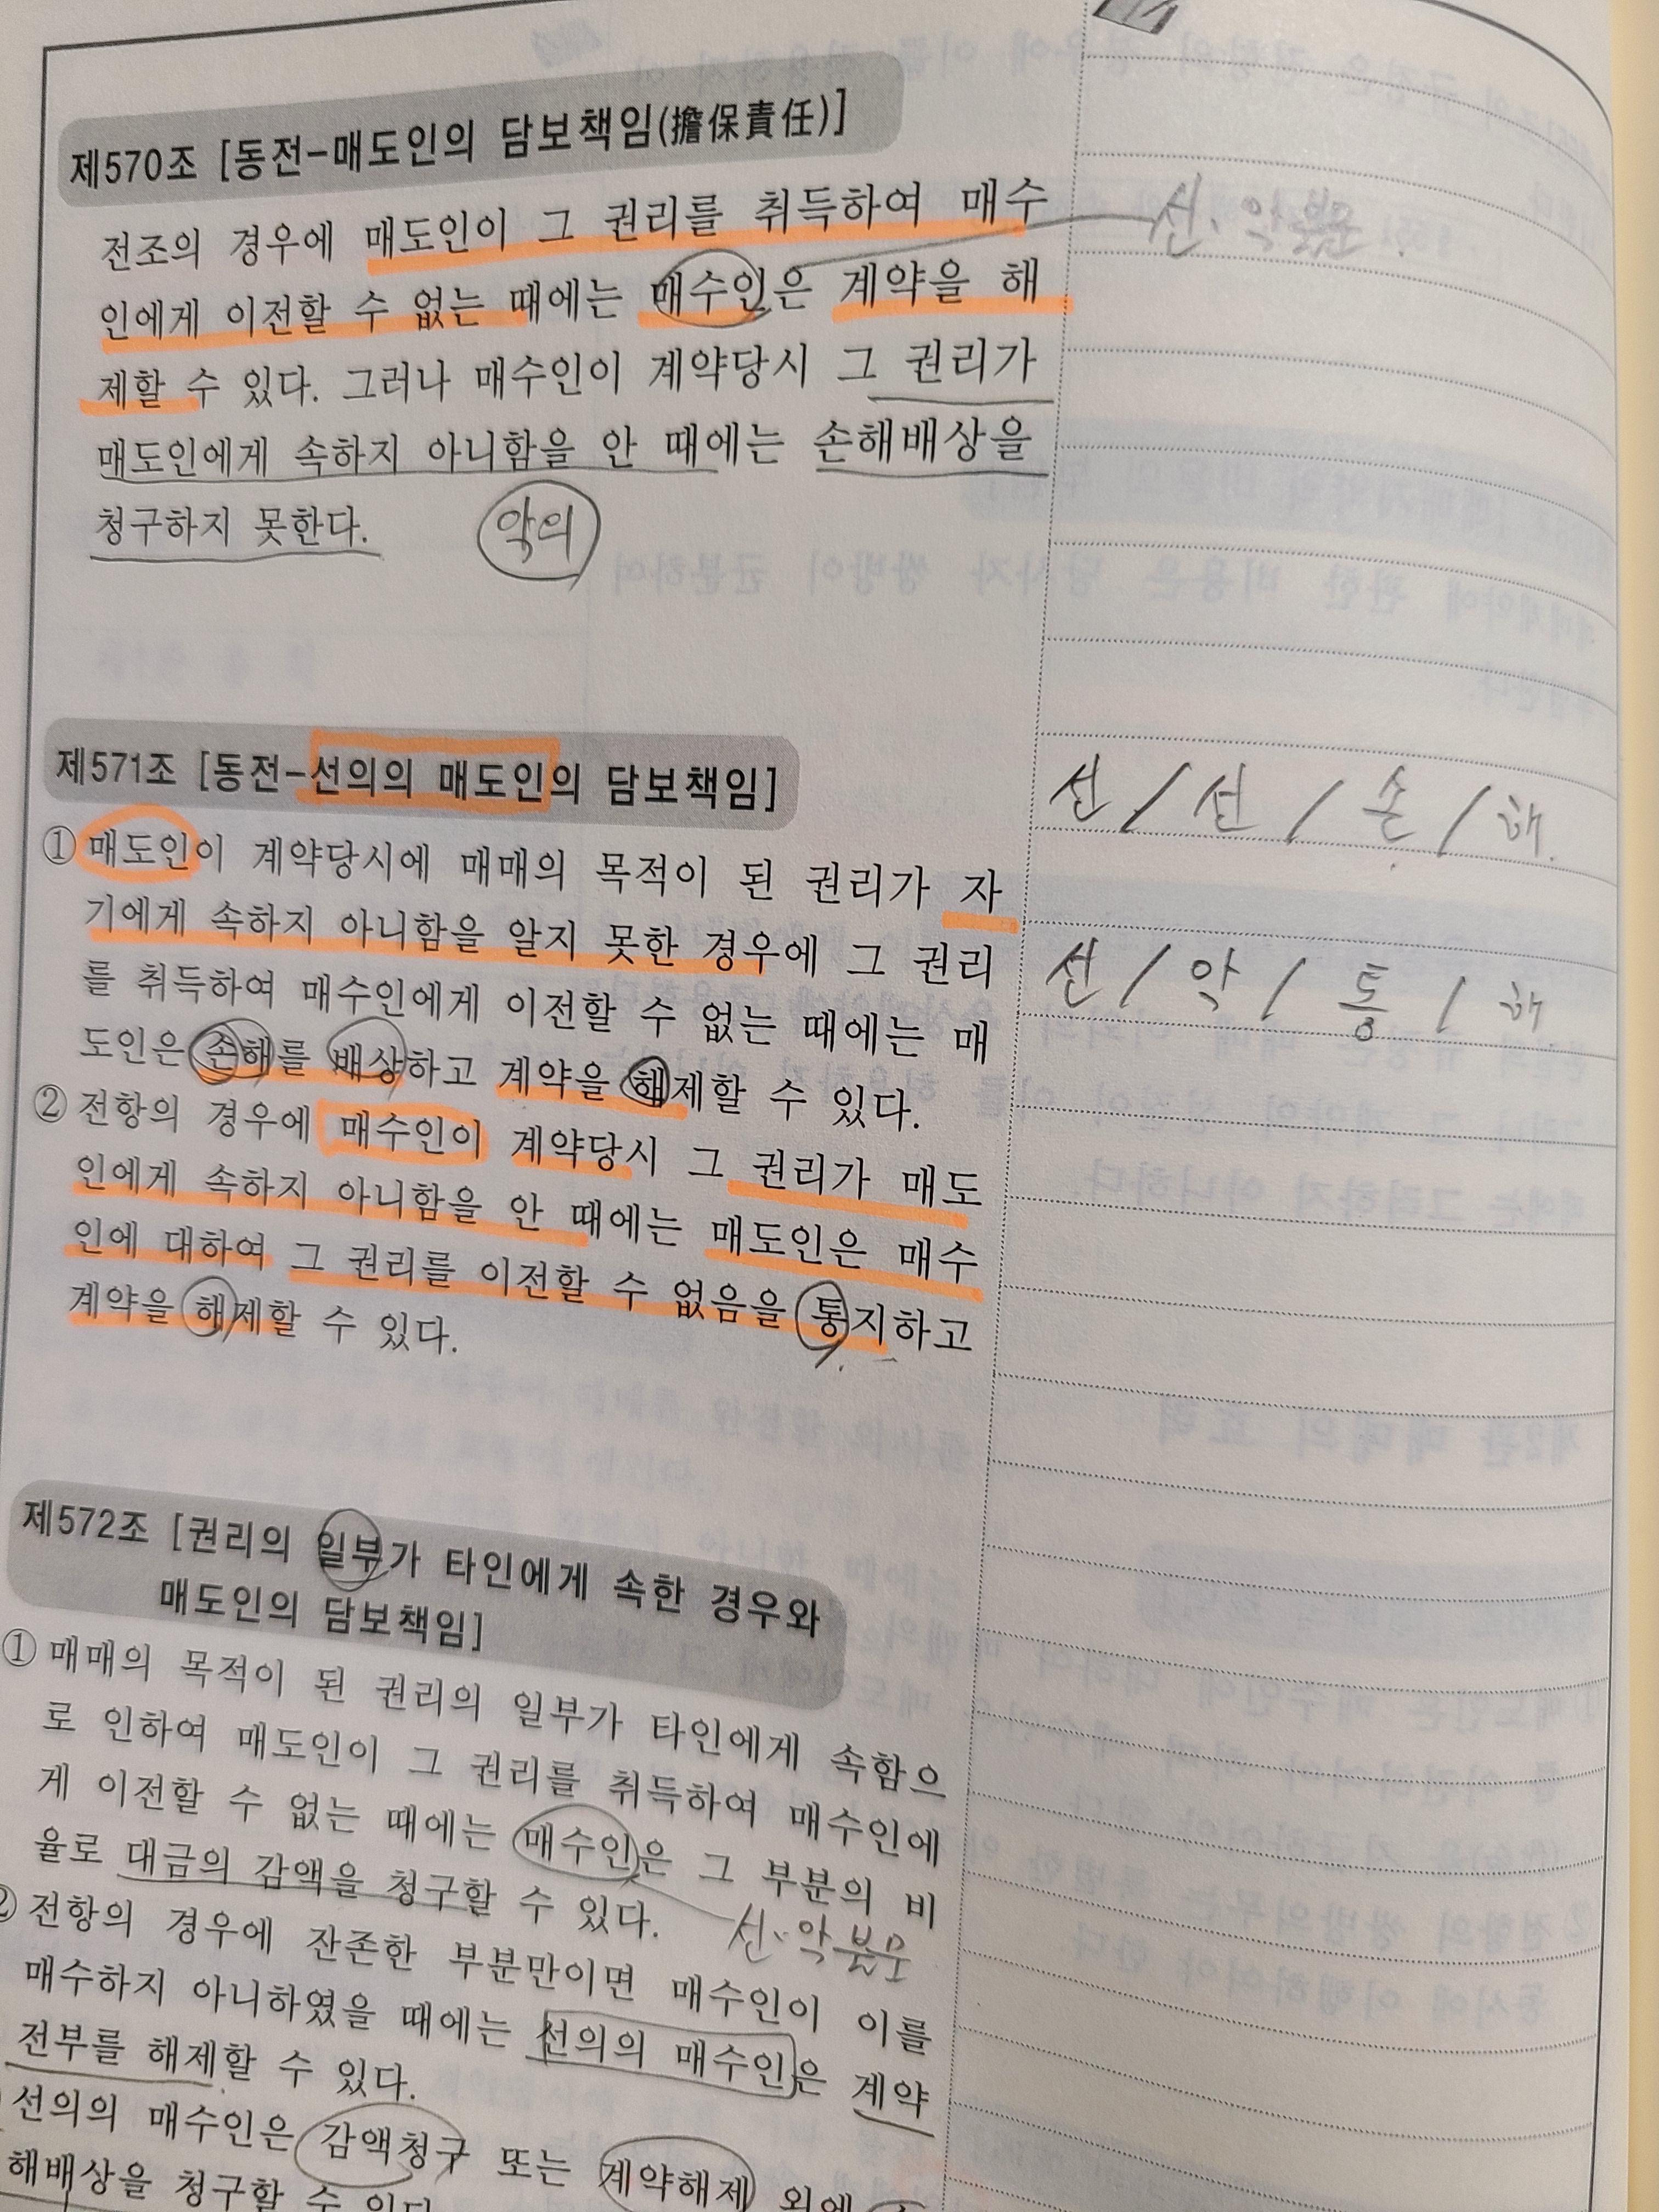 제570조 [동전-매도인의 담보책임(擔保責任)]
전조의 경우에 매도인이 그 권리를 취득하여 매수
인에게 이전할 수 없는 때에는 매수인은 계약을 해
제할 수 있다. 그러나 매수인이 계약당시 그 권리가
매도인에게 속하지 아니함을 안 때에는 손해배상을
청구하지 못한다.
악의
선·악불문.
제571조 [동전-선의의 매도인의 담보책임]
① 매도인이 계약당시에 매매의 목적이 된 권리가 자
기에게 속하지 아니함을 알지 못한 경우에 그 권리
를 취득하여 매수인에게 이전할 수 없는 때에는 매
도인은 손해를 배상하고 계약을 해제할 수 있다.
② 전항의 경우에 매수인이 계약당시 그 권리가 매도
인에게 속하지 아니함을 안 때에는 매도인은 매수
인에 대하여 그 권리를 이전할 수 없음을 통지하고
계약을 해제할 수 있다.
선 / 선 / 손 / 해.
선 / 악 / 통 / 해
제572조 [권리의 일부가 타인에게 속한 경우와
매도인의 담보책임]
① 매매의 목적이 된 권리의 일부가 타인에게 속함으
로 인하여 매도인이 그 권리를 취득하여 매수인에
게 이전할 수 없는 때에는 매수인은 그 부분의 비
율로 대금의 감액을 청구할 수 있다.
선·악불문
② 전항의 경우에 잔존한 부분만이면 매수인이 이를
매수하지 아니하였을 때에는 선의의 매수인은 계약
전부를 해제할 수 있다.
선의의 매수인은 감액청구 또는 계약해제 외에
해배상을 청구할 수 있다